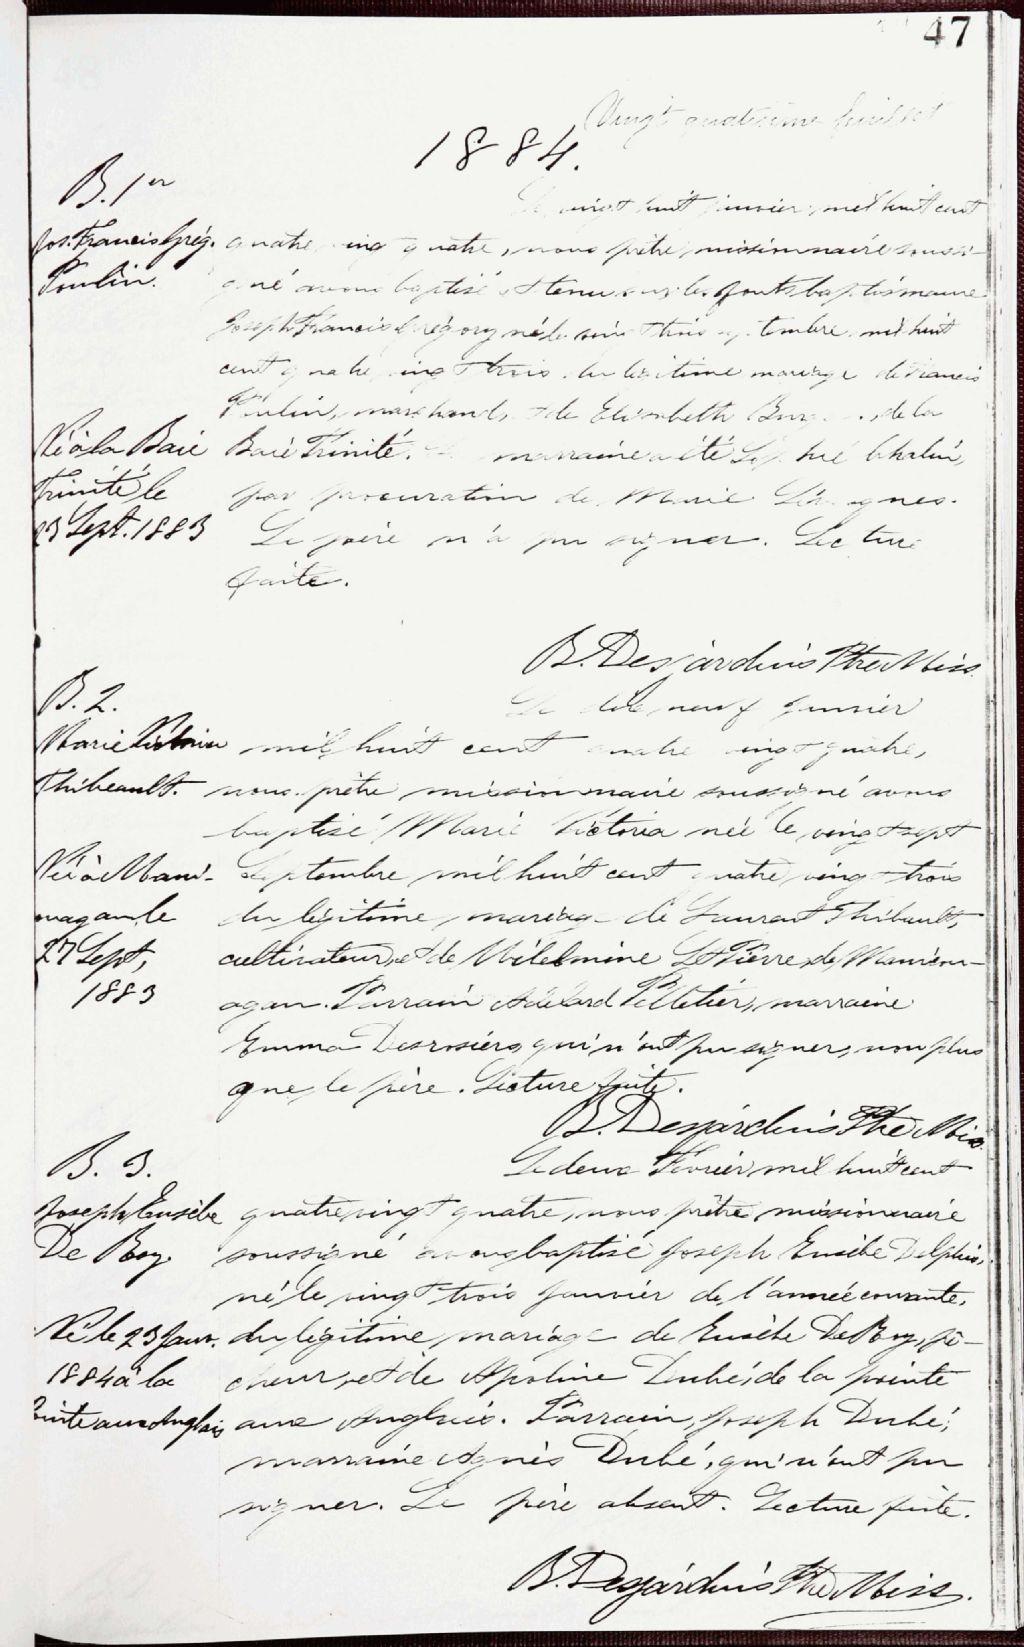 47
Vingt quatrième feuillet
1884.
B. 1er
Jos. Francis Grég.
Poulin.
Né à la Baie
Trinité le
23 Sept. 1883
Le vingt huit janvier, mil huit cent
quatre vingt quatre, nous prêtre missionnaire soussi-
gné avons baptisé et tenu sur les fonts baptismaux
Joseph Francis Grégory né le vingt trois septembre mil huit
cent quatre vingt trois du légitime mariage de Francis
Poulin, marchand, et de Elisabeth de la
Baie Trinité. marraine a été
par procuration de Marie
Le père n'a pu signer. Lecture
faite.
B. Desjardins Ptre Miss.
B. 2.
Marie Victoria
Thibeault.
Née à Mani-
couagan le
27 Sept,
1883
Le dix neuf janvier
mil huit cent quatre vingt quatre,
nous prêtre missionnaire soussigné avons
baptisé Marie Victoria née le vingt sept
Septembre mil huit cent quatre vingt trois
du légitime mariage de Laurent Thibault,
cultivateur, et de Wilelmine St Pierre, de Manicou-
agan. Parrain Adélard Pelletier, marraine
Emma Desrosiers, qui n'ont pu signer, non plus
que le père. Lecture faite.
B. Desjardins Ptre Miss.
B. 3.
Joseph Eusèbe
De Roy
Né le 23 Janv.
1884 à la
Pointe aux Anglais
Le deux Février mil huit cent
quatre vingt quatre, nous prêtre missionnaire
soussigné avons baptisé Joseph Eusèbe Delphis,
né le vingt trois Janvier de l'année courante,
du légitime mariage de Eusèbe De Roy, pê-
cheur, et de Apoline Dubé, de la pointe
aux Anglais. Parrain, Joseph Dubé,
marraine Agnès Dubé, qui n'ont pu
signer. Le père absent. Lecture faite.
B. Desjardins Ptre Miss.